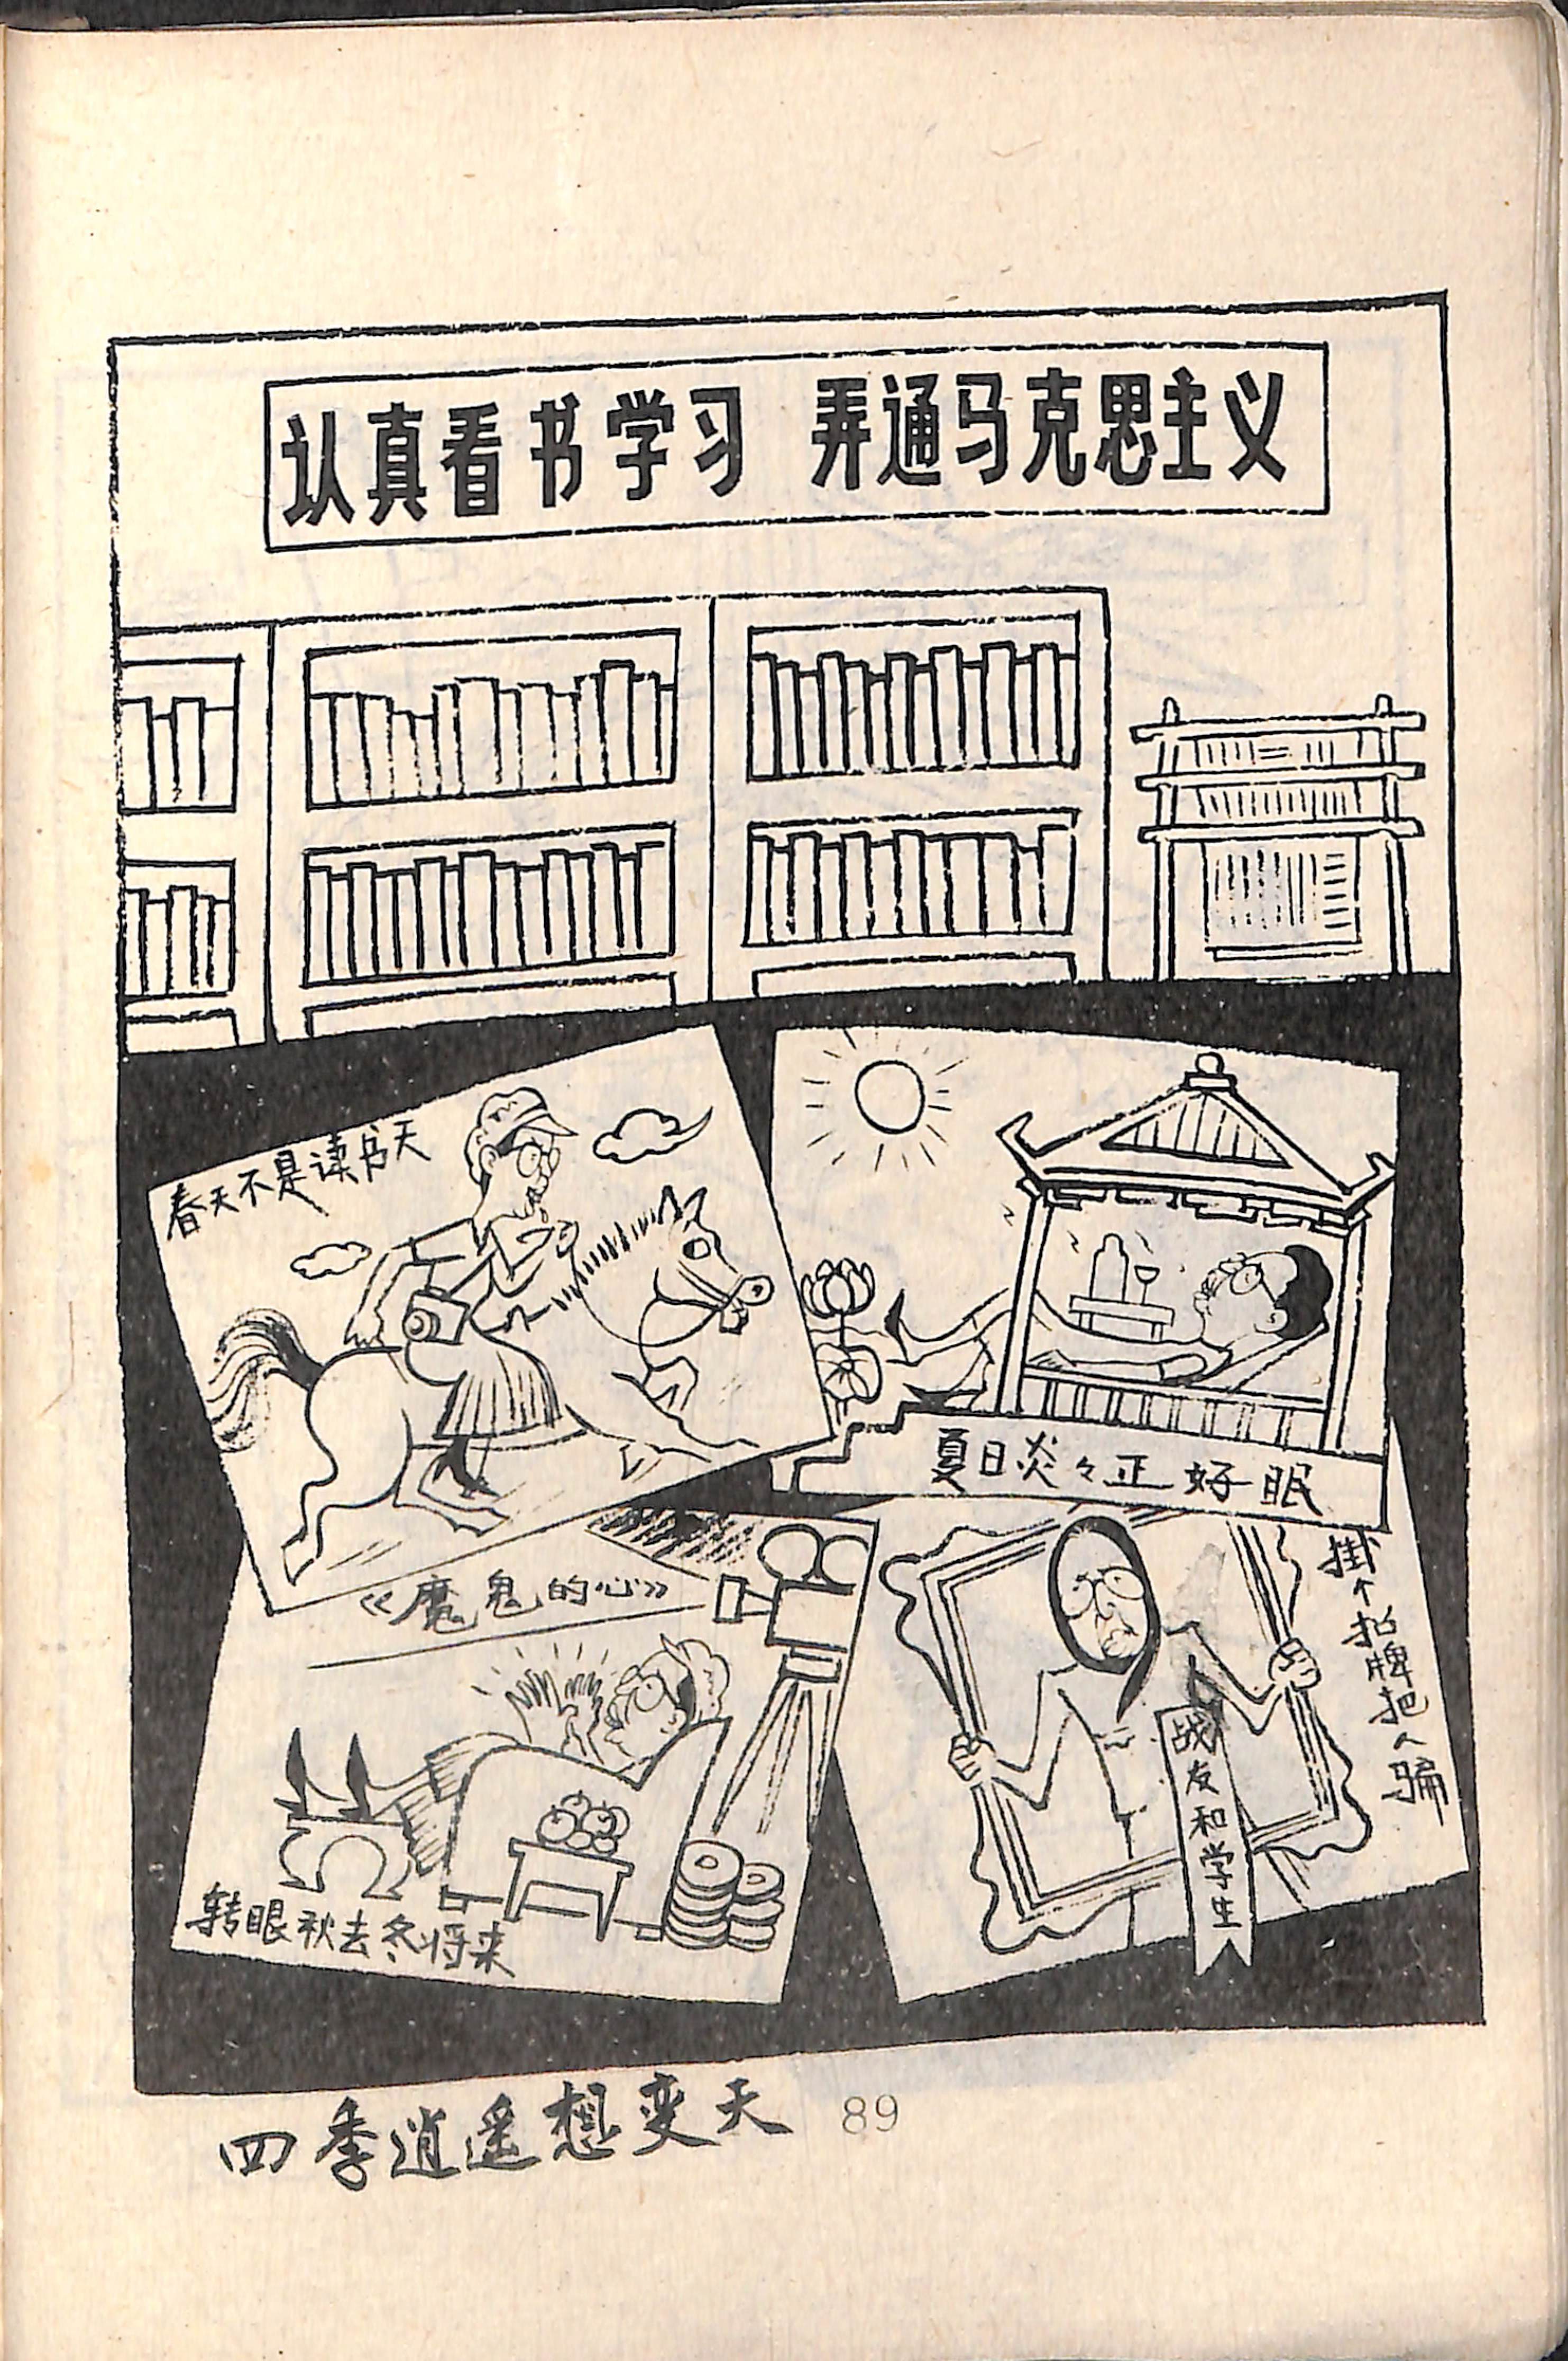 认真看书学习 弄通马克思主义
春天不是读书天
夏日炎々正好眠
《魔鬼的心》
转眼秋去冬将来
掛个招牌把人骗
战友和学生
四季逍遥想变天
89